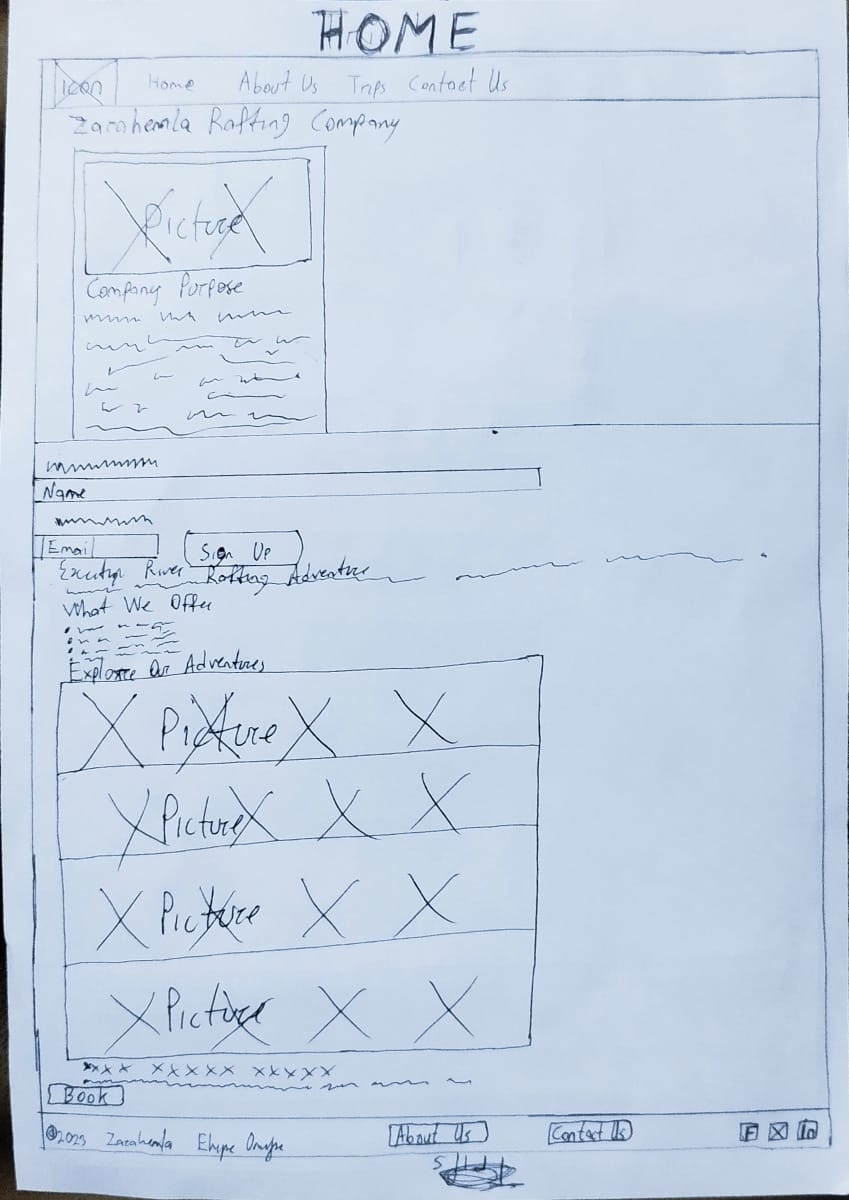 HOME
Icon Home About Us Trips Contact Us
Zarahemla Rafting Company
Picture
Company Purpose
Name
Email
Sign Up
River Rafting Adventure
What We Offer
Explore Our Adventures
Picture
Picture
Picture
Picture
xxxx xxxxx xxxxx
Book
©2023 Zarahemla About Us Contact Us F X in